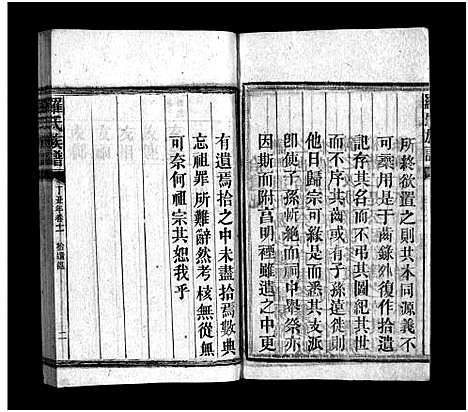 所終欲置之則其本同源義不
可棄用是于齒錄外復作拾遺
記存其名而不弔其圖紀其世
而不序其齒或有子孫遠徙則
他日歸宗可緣是而悉其支派
即使子孫斬絕而祠中舉祭亦
因斯而附菖明禋雖遺之中更
羅氏族譜
丁丑年卷十一
拾遺錄
有遺焉拾之中未盡拾焉數典
忘祖罪所難辭然考核無從無
可奈何祖宗其恕我乎